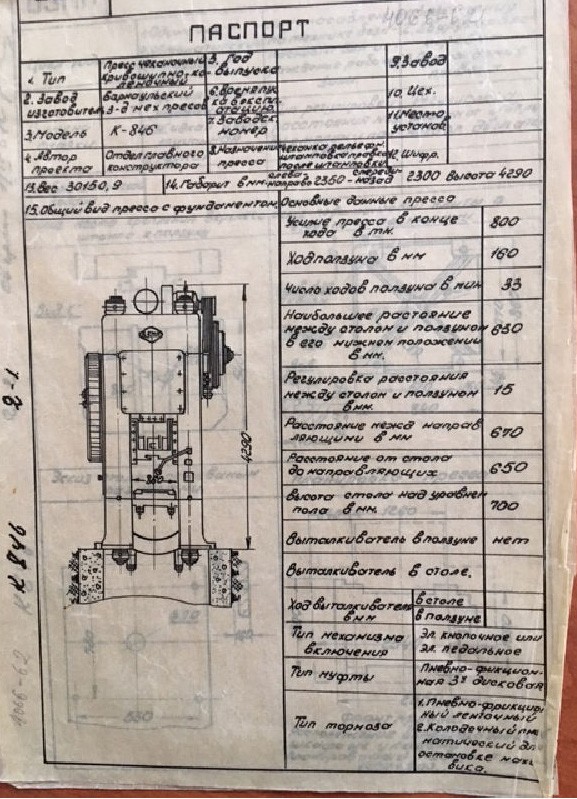 4066-62
ПАСПОРТ
1. Тип
Пресс механичный
кривошипно-ко-
леночный
5. Год
выпуска
9. Завод
2. Завод
изготовитель
Барнаульский
з-д мех прессов
10. Цех.
3. Модель
К-846
7. Заводск.
номер
11. Место
установ.
4. Автор
проекта
Отдел главного
конструктора
8. Назначение
пресса
после штамповки
12. Шифр.
13. Вес 30150,9
14. Габарит в мм слева-направо 2350 - спереди-назад 2300 Высота 4290
15. Общий вид пресса с фундаментом. Основные данные пресса
Усилие пресса в конце
хода в тн.
800
Ход ползуна в мм
160
Число ходов ползуна в мин
33
Наибольшее растояние
между столом и ползуном
в его нижном положении
в мм.
650
Регулировка расстояния
между столом и ползуном
в мм.
15
Расстояние межд направ
ляющими в мм
670
Расстояние от стола
до направляющих
650
Высота стола над уравнем
пола в мм.
700
Выталкиватель в ползуне
нет
Выталкиватель в столе.
Ход выталкивателя
в мм
в столе
в ползуне
Тип механизма
включения
Эл. кнопочное или
эл. педальное
Тип муфты
Пневно-фикцион-
ная 3х дисковая
Тип тормоза
1. Пневно-фрикцио
ный ленточный
2. Колодечный пне
матический дл
остановке мах
вика.
4290
2-1
К 846
4066-62
530